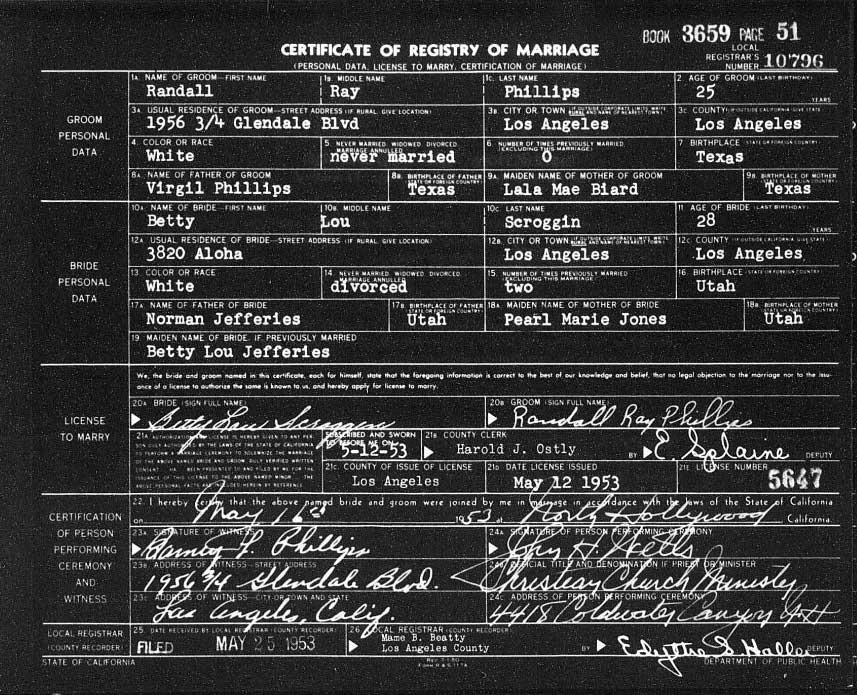 BOOK 3659 PAGE 51
CERTIFICATE OF REGISTRY OF MARRIAGE
LOCAL REGISTRAR'S NUMBER 10796
(PERSONAL DATA, LICENSE TO MARRY, CERTIFICATION OF MARRIAGE)
GROOM PERSONAL DATA
1A. NAME OF GROOM—FIRST NAME 1B. MIDDLE NAME 1C. LAST NAME 2. AGE OF GROOM (LAST BIRTHDAY)
Randall Ray Phillips 25 YEARS
3A. USUAL RESIDENCE OF GROOM—STREET ADDRESS (IF RURAL, GIVE LOCATION) 3B. CITY OR TOWN 3C. COUNTY
1956 3/4 Glendale Blvd Los Angeles Los Angeles
4. COLOR OR RACE 5. NEVER MARRIED, WIDOWED, DIVORCED, MARRIAGE ANNULLED 6. NUMBER OF TIMES PREVIOUSLY MARRIED (EXCLUDING THIS MARRIAGE) 7. BIRTHPLACE (STATE OR FOREIGN COUNTRY)
White never married 0 Texas
8A. NAME OF FATHER OF GROOM 8B. BIRTHPLACE OF FATHER (STATE OR FOREIGN COUNTRY) 9A. MAIDEN NAME OF MOTHER OF GROOM 9B. BIRTHPLACE OF MOTHER (STATE OR FOREIGN COUNTRY)
Virgil Phillips Texas Lala Mae Biard Texas
BRIDE PERSONAL DATA
10A. NAME OF BRIDE—FIRST NAME 10B. MIDDLE NAME 10C. LAST NAME 11. AGE OF BRIDE (LAST BIRTHDAY)
Betty Lou Scroggin 28 YEARS
12A. USUAL RESIDENCE OF BRIDE—STREET ADDRESS (IF RURAL, GIVE LOCATION) 12B. CITY OR TOWN 12C. COUNTY
3820 Aloha Los Angeles Los Angeles
13. COLOR OR RACE 14. NEVER MARRIED, WIDOWED, DIVORCED, MARRIAGE ANNULLED 15. NUMBER OF TIMES PREVIOUSLY MARRIED (EXCLUDING THIS MARRIAGE) 16. BIRTHPLACE (STATE OR FOREIGN COUNTRY)
White divorced two Utah
17A. NAME OF FATHER OF BRIDE 17B. BIRTHPLACE OF FATHER (STATE OR FOREIGN COUNTRY) 18A. MAIDEN NAME OF MOTHER OF BRIDE 18B. BIRTHPLACE OF MOTHER (STATE OR FOREIGN COUNTRY)
Norman Jefferies Utah Pearl Marie Jones Utah
19. MAIDEN NAME OF BRIDE, IF PREVIOUSLY MARRIED
Betty Lou Jefferies
LICENSE TO MARRY
We, the bride and groom named in this certificate, each for himself, state that the foregoing information is correct to the best of our knowledge and belief, that no legal objection to the marriage nor to the issu-
ance of a license to authorize the same is known to us, and hereby apply for license to marry.
20A. BRIDE (SIGN FULL NAME) 20B. GROOM (SIGN FULL NAME)
Betty Lou Scroggin Randall Ray Phillips
SUBSCRIBED AND SWORN TO BEFORE ME ON 5-12-53
21B. COUNTY CLERK
Harold J. Ostly BY E. Splaine DEPUTY
21C. COUNTY OF ISSUE OF LICENSE 21D. DATE LICENSE ISSUED 21E. LICENSE NUMBER
Los Angeles May 12 1953 5647
CERTIFICATION OF PERSON PERFORMING CEREMONY AND WITNESS
22. I hereby certify that the above named bride and groom were joined by me in marriage in accordance with the laws of the State of California
on May 16th 1953 at North Hollywood California.
23A. SIGNATURE OF WITNESS 24A. SIGNATURE OF PERSON PERFORMING CEREMONY
Phillips
23B. ADDRESS OF WITNESS—STREET ADDRESS 24B. OFFICIAL TITLE AND DENOMINATION IF PRIEST OR MINISTER
1956 3/4 Glendale Blvd. Christian Church Minister
23C. ADDRESS OF WITNESS—CITY OR TOWN AND STATE 24C. ADDRESS OF PERSON PERFORMING CEREMONY
Los Angeles, Calif. 4418 Coldwater Canyon N H
LOCAL REGISTRAR (COUNTY RECORDER)
25. DATE RECEIVED BY LOCAL REGISTRAR (COUNTY RECORDER) 26. LOCAL REGISTRAR (COUNTY RECORDER)
FILED MAY 25 1953 Mame B. Beatty
Los Angeles County BY DEPUTY
STATE OF CALIFORNIA DEPARTMENT OF PUBLIC HEALTH